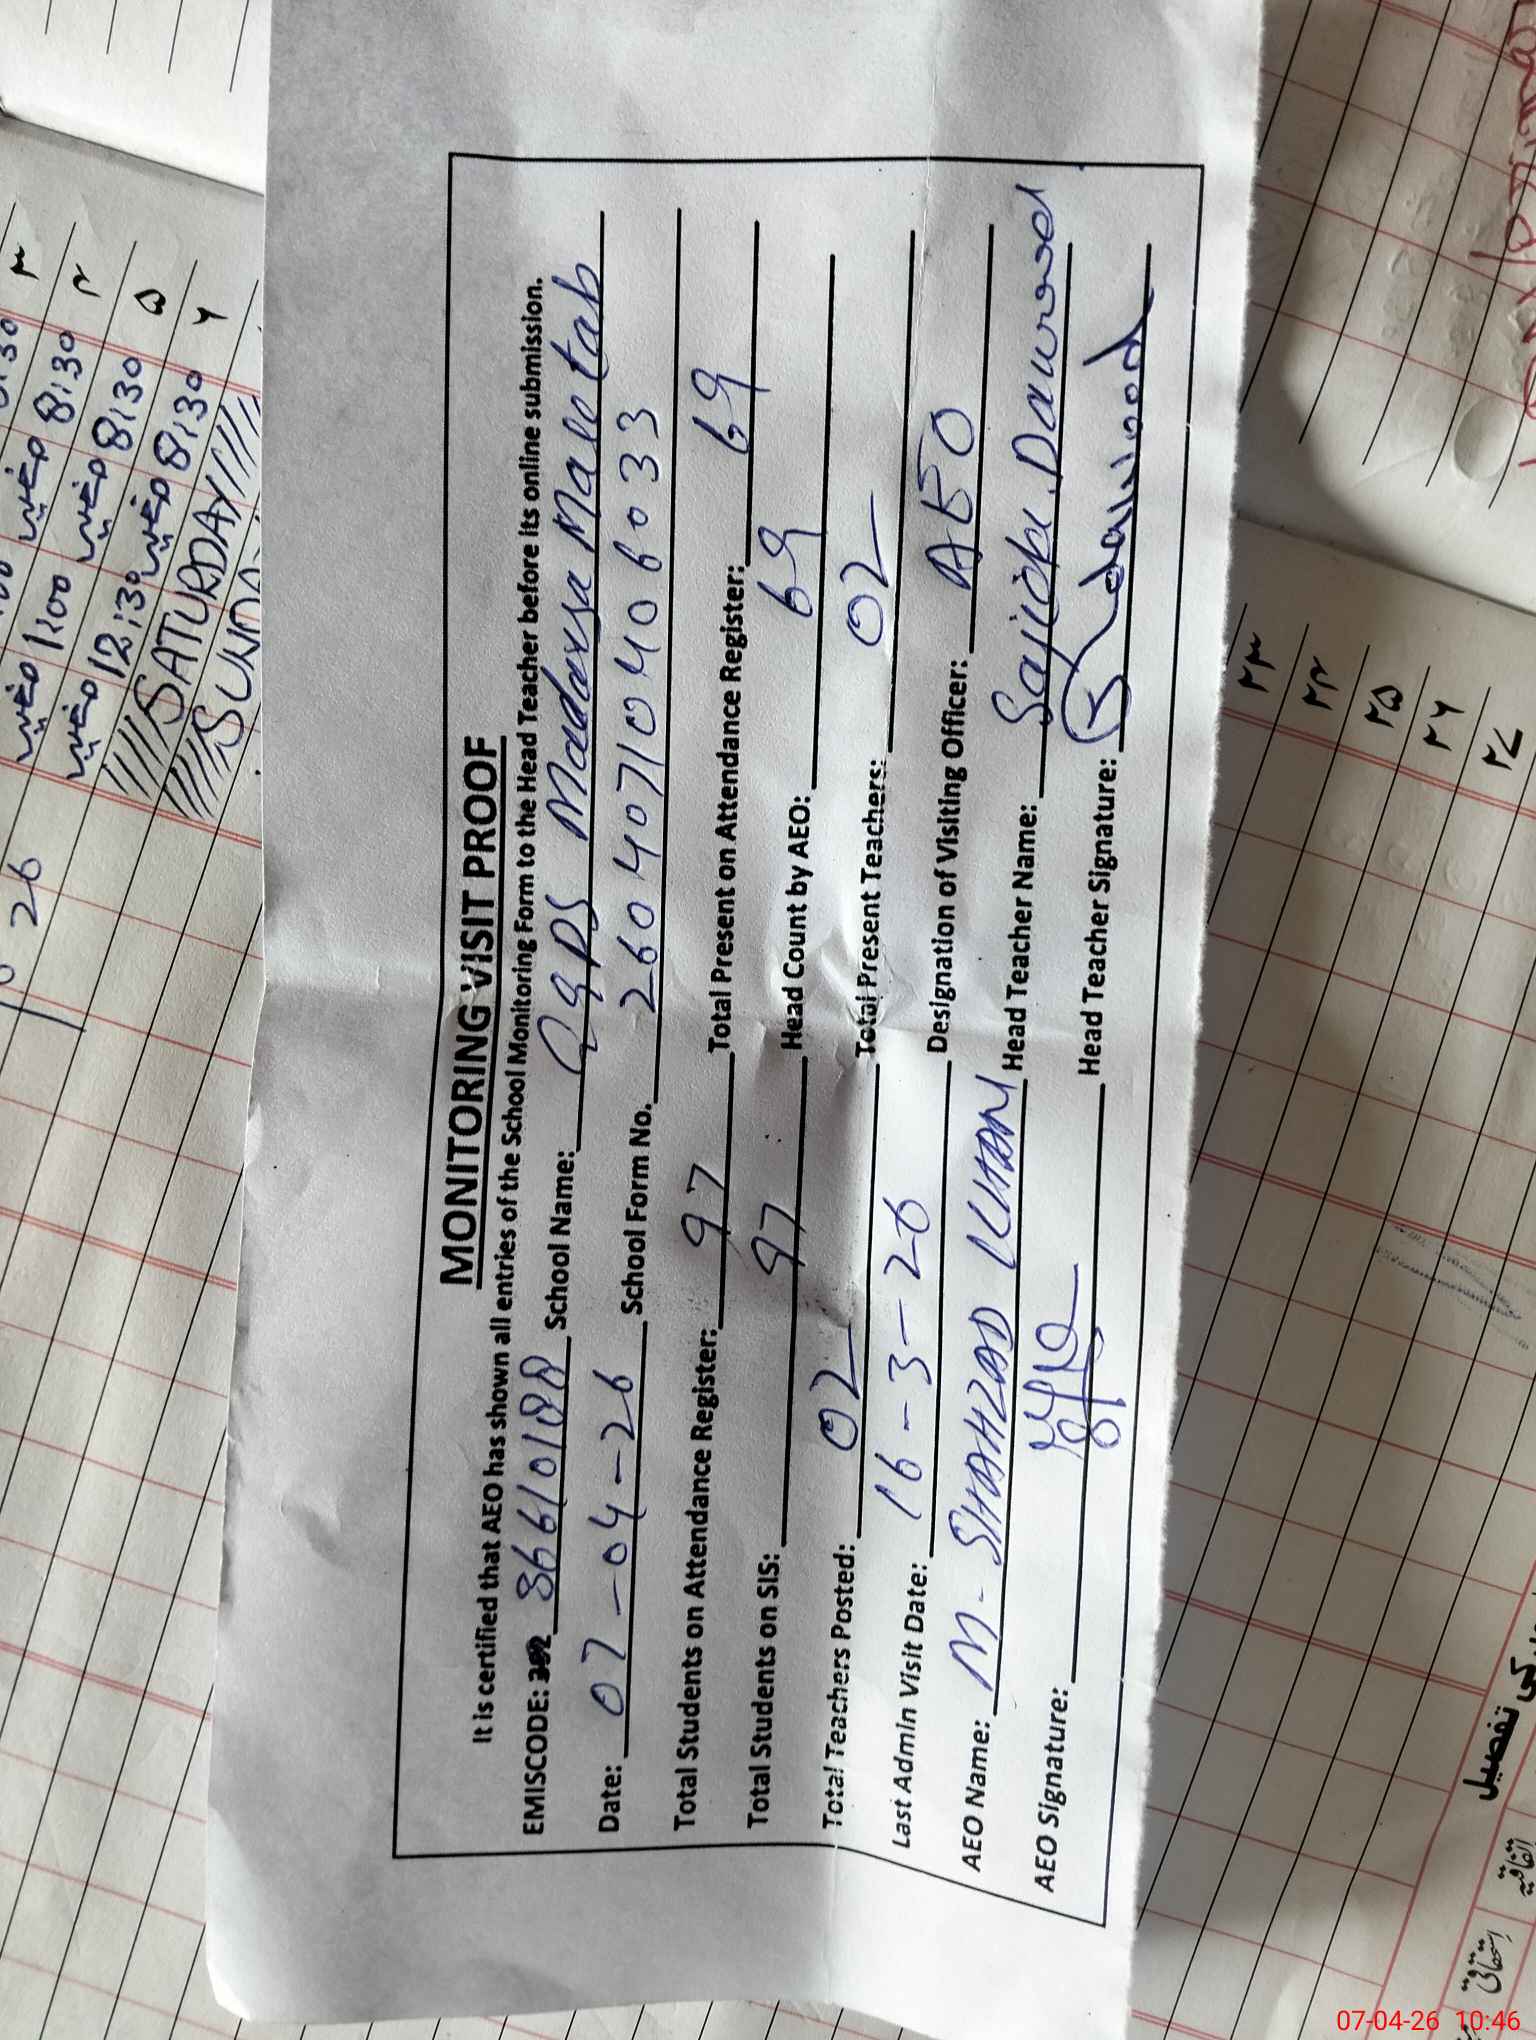 MONITORING VISIT PROOF
It is certified that AEO has shown all entries of the School Monitoring Form to the Head Teacher before its online submission.
EMISCODE: 36610188 School Name: GGPS Madarsa Male tab
Date: 07-04-26 School Form No. 26040710406033
Total Students on Attendance Register: 97 Total Present on Attendance Register: 69
Total Students on SIS: 97 Head Count by AEO: 69
Total Teachers Posted: 02 Total Present Teachers: 02
Last Admin Visit Date: 16-3-26 Designation of Visiting Officer: AEO
AEO Name: M. SHAHZAD KHAN Head Teacher Name: Sajida Dawood
AEO Signature: Head Teacher Signature: Dawood
8:30 ۳
1:00 8:30 ۴
12:30 8:30 ۵
8:30 ۶
SATURDAY
26
۲۳
۲۴
۲۵
۲۶
۲۷
کی تفصیل
اتفاقیہ
استحقاقی
07-04-26 10:46